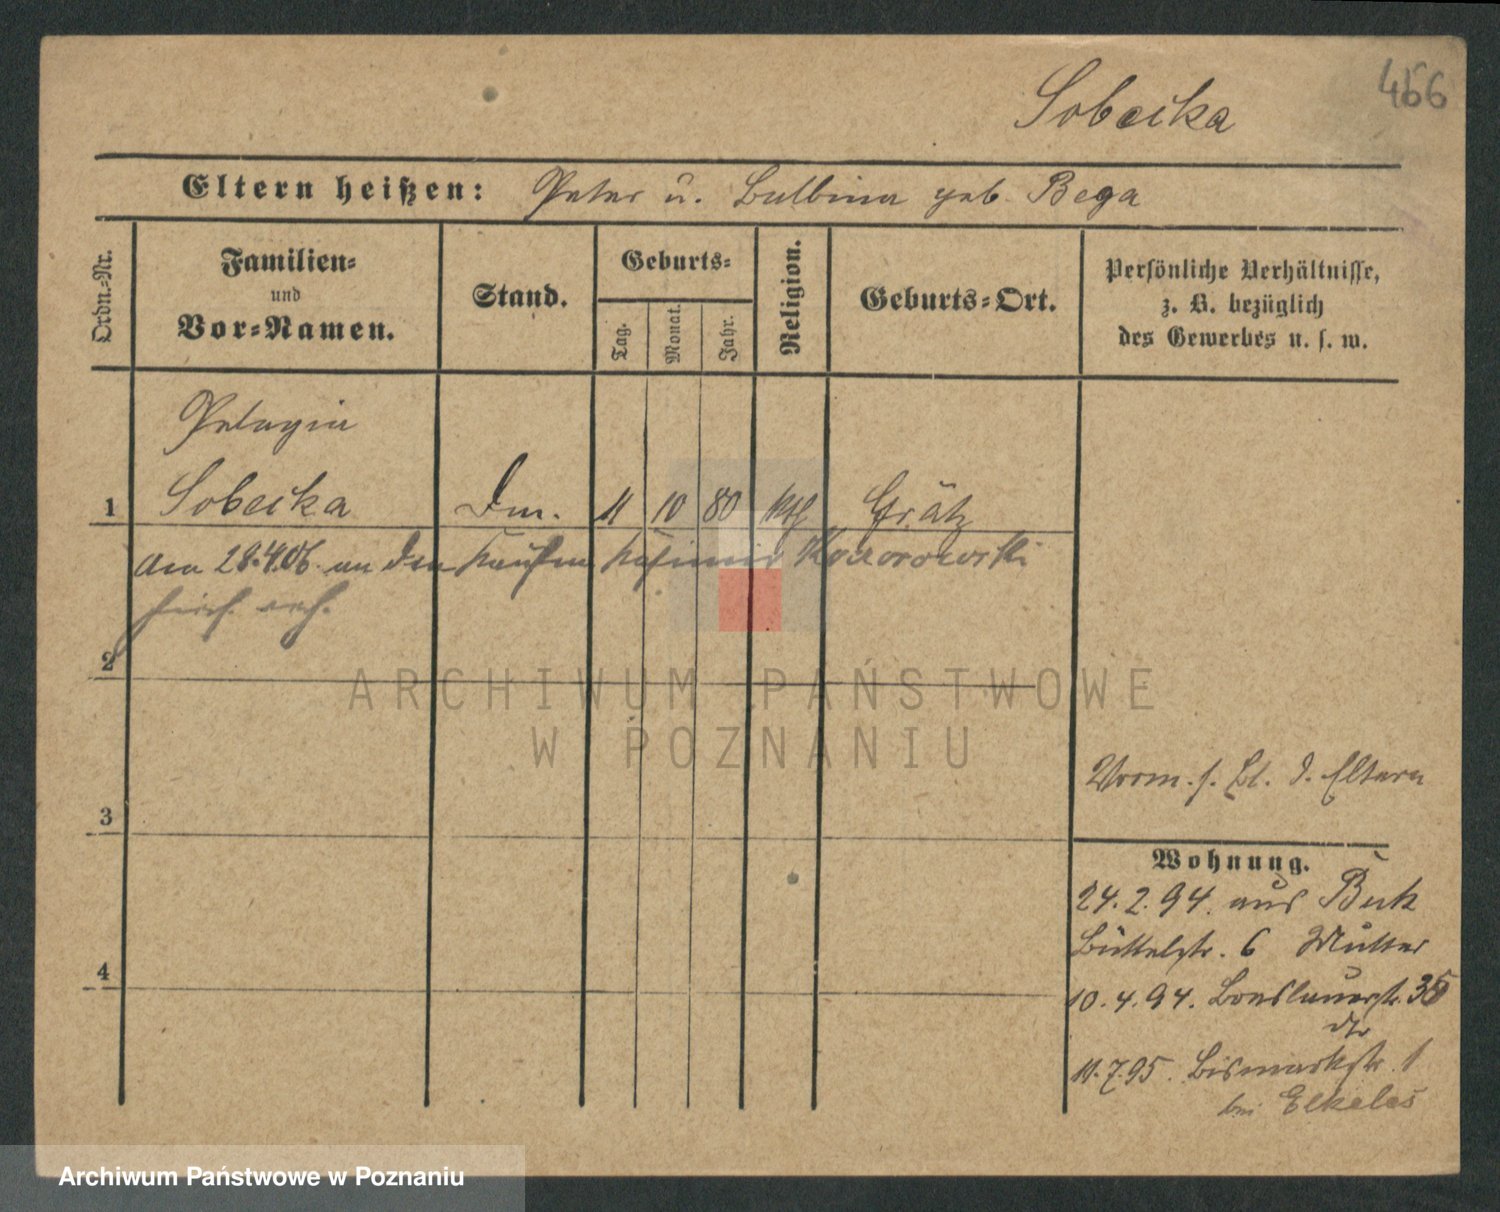 Sobecka
456
Eltern heißen: Peter u. Balbina geb. Bega
Ordn.-Nr.
Familien-
und
Vor-Namen.
Stand.
Geburts-
Tag.
Monat.
Jahr.
Religion.
Geburts-Ort.
Persönliche Verhältnisse,
z. B. bezüglich
des Gewerbes u. s. w.
Pelagia
1 Sobecka 11 10 80 kth Grätz
Am 28.4.06. an den Kaufm Kasimir
2
ARCHIWUM PAŃSTWOWE
W POZNANIU
3
Vorm. s. Bl. d. Eltern
Wohnung.
24.2.94. aus Buk
Büttelstr. 6 Mutter
4
10.4.94. Breslauerstr.
dto
11.7.95. Bismarckstr. 1
bei Elkeles
Archiwum Państwowe w Poznaniu